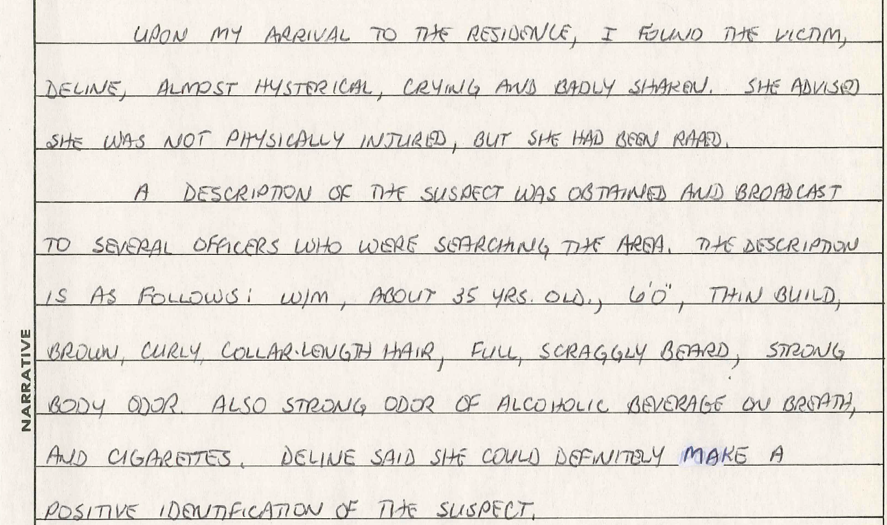 UPON MY ARRIVAL TO THE RESIDENCE, I FOUND THE VICTIM,
DELINE, ALMOST HYSTERICAL, CRYING AND BADLY SHAKEN. SHE ADVISED
SHE WAS NOT PHYSICALLY INJURED, BUT SHE HAD BEEN RAPED.
A DESCRIPTION OF THE SUSPECT WAS OBTAINED AND BROADCAST
TO SEVERAL OFFICERS WHO WERE SEARCHING THE AREA. THE DESCRIPTION
IS AS FOLLOWS: W/M, ABOUT 35 YRS. OLD., 6'0", THIN BUILD,
BROWN, CURLY, COLLAR-LENGTH HAIR, FULL, SCRAGGLY BEARD, STRONG
BODY ODOR. ALSO STRONG ODOR OF ALCOHOLIC BEVERAGE ON BREATH,
AND CIGARETTES. DELINE SAID SHE COULD DEFINITELY MAKE A
POSITIVE IDENTIFICATION OF THE SUSPECT.
NARRATIVE